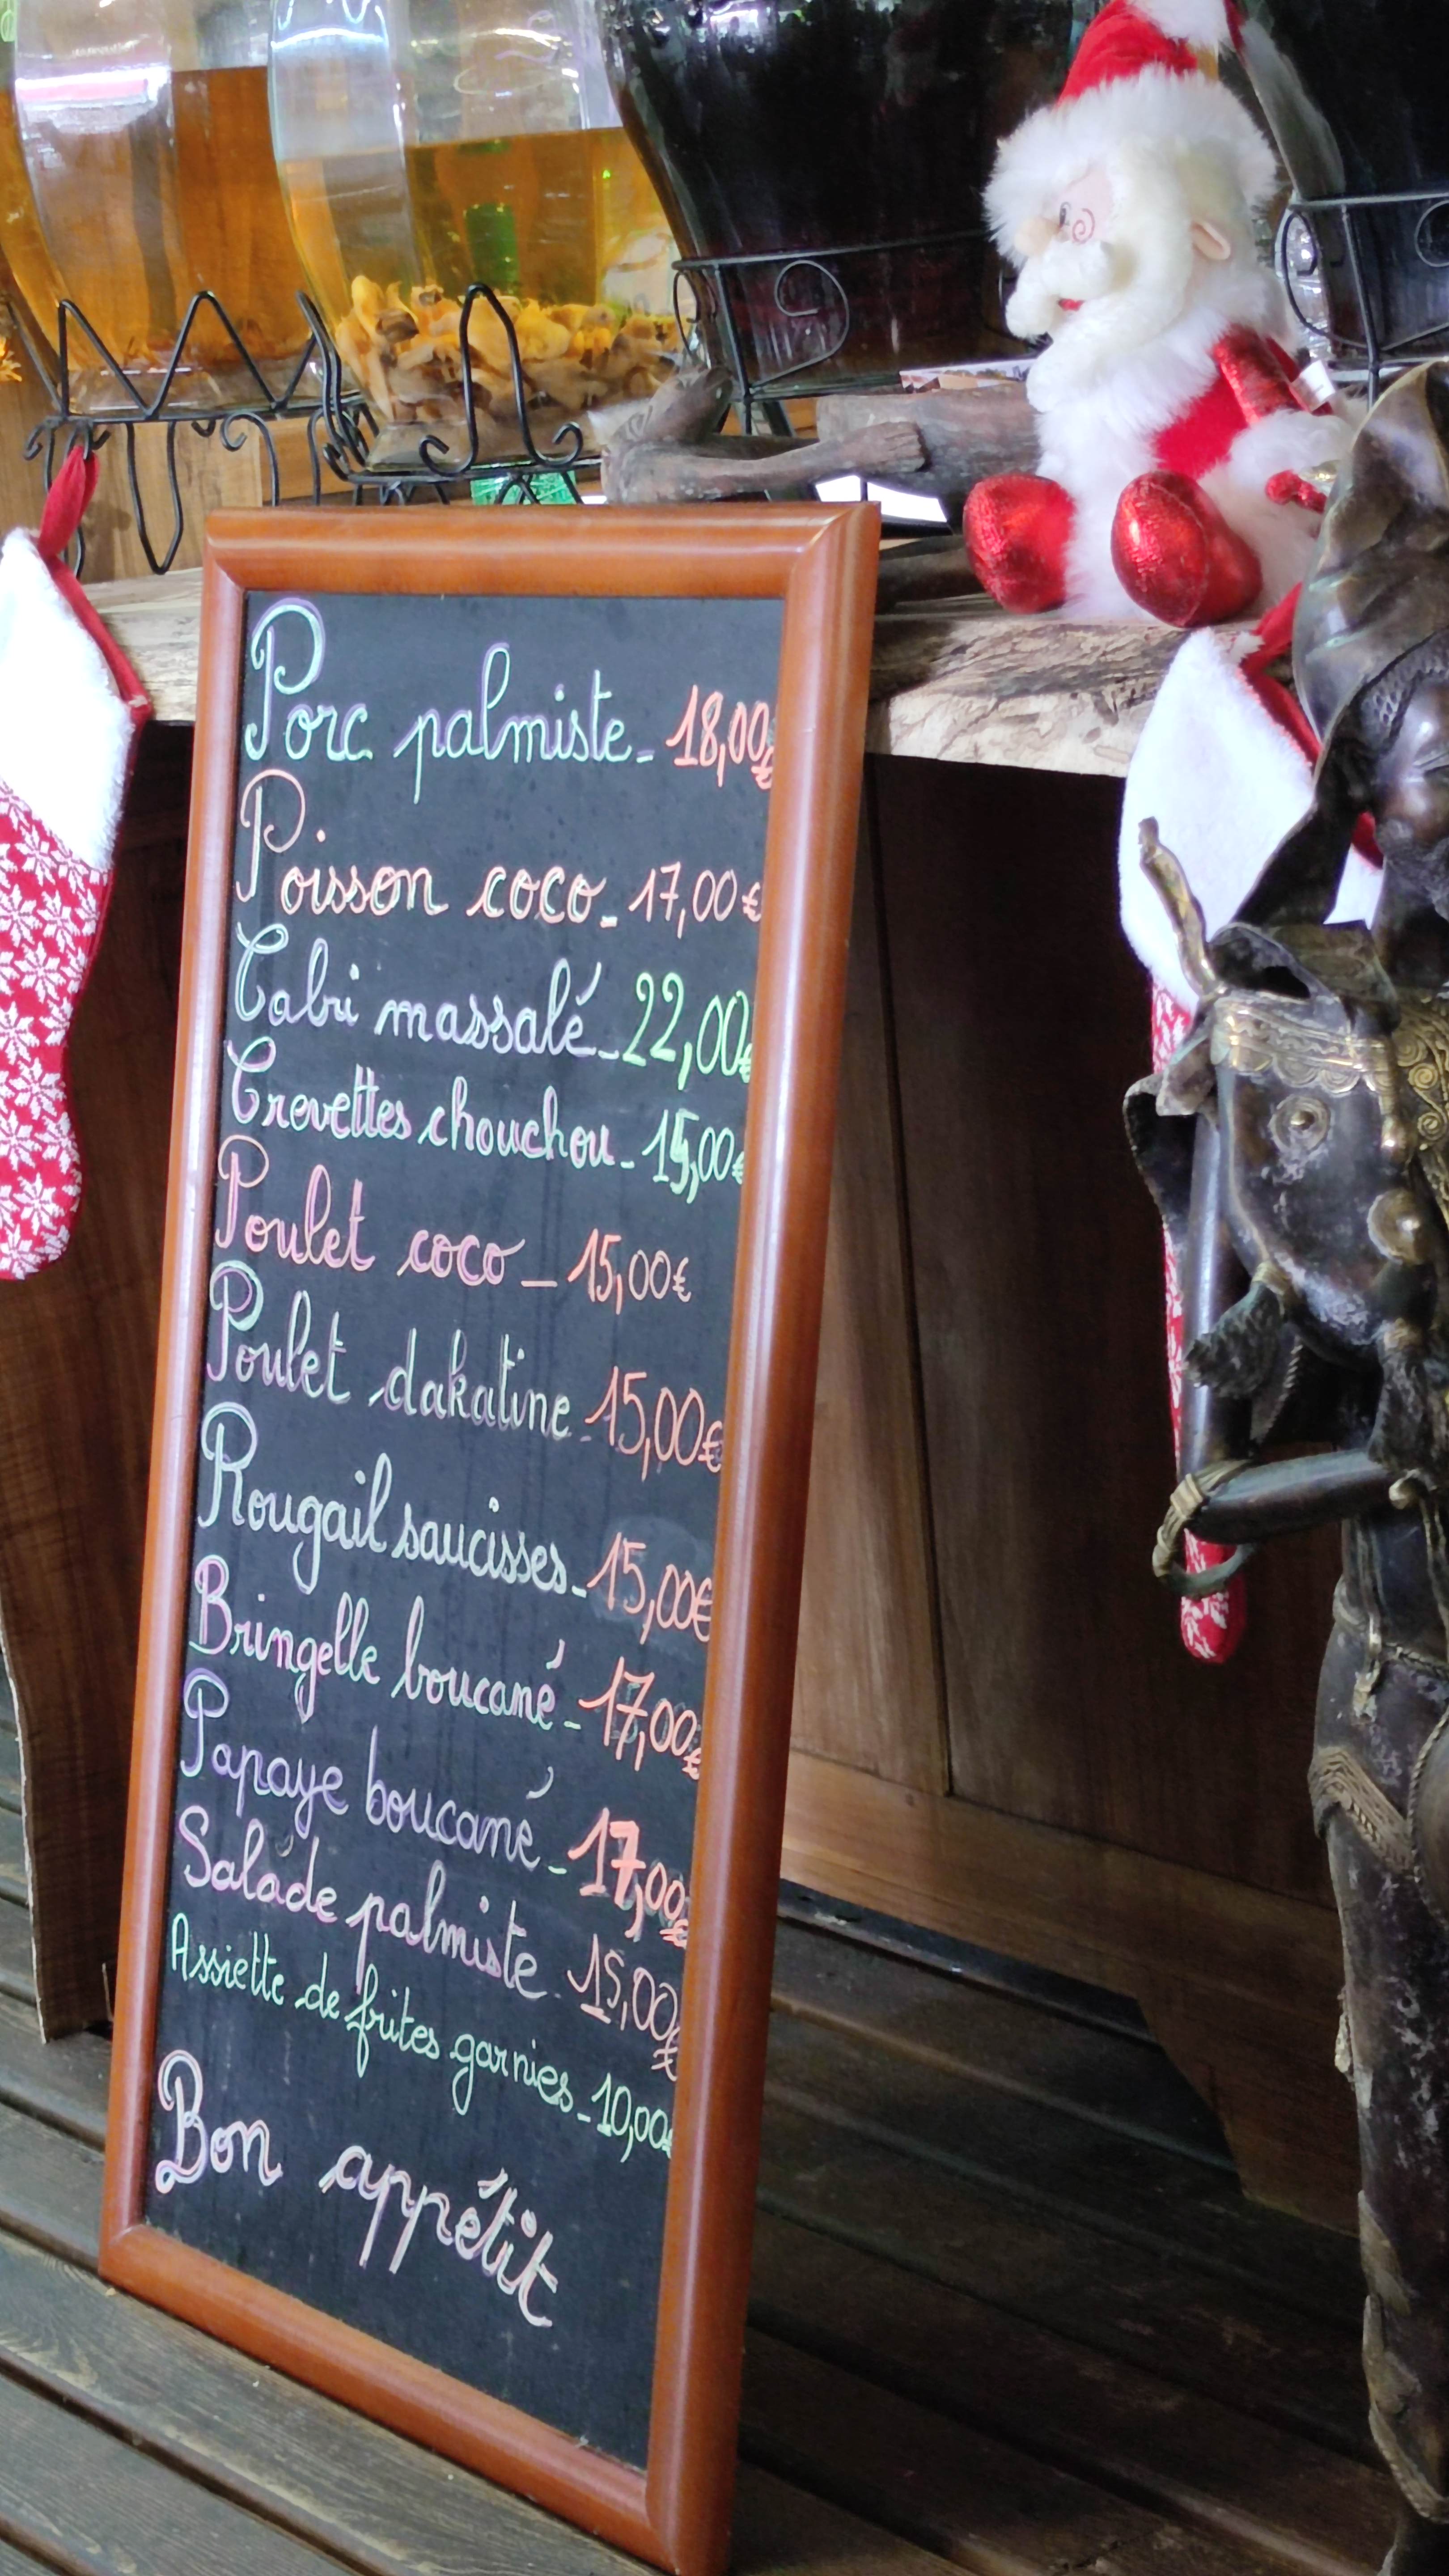 Porc palmiste - 18,00€
Poisson coco - 17,00€
Cabri massalé - 22,00€
Crevettes chouchou - 15,00€
Poulet coco - 15,00€
Poulet dakatine - 15,00€
Rougail saucisses - 15,00€
Bringelle boucané - 17,00€
Papaye boucané - 17,00€
Salade palmiste - 15,00€
Assiette de frites garnies - 10,00€
Bon appétit